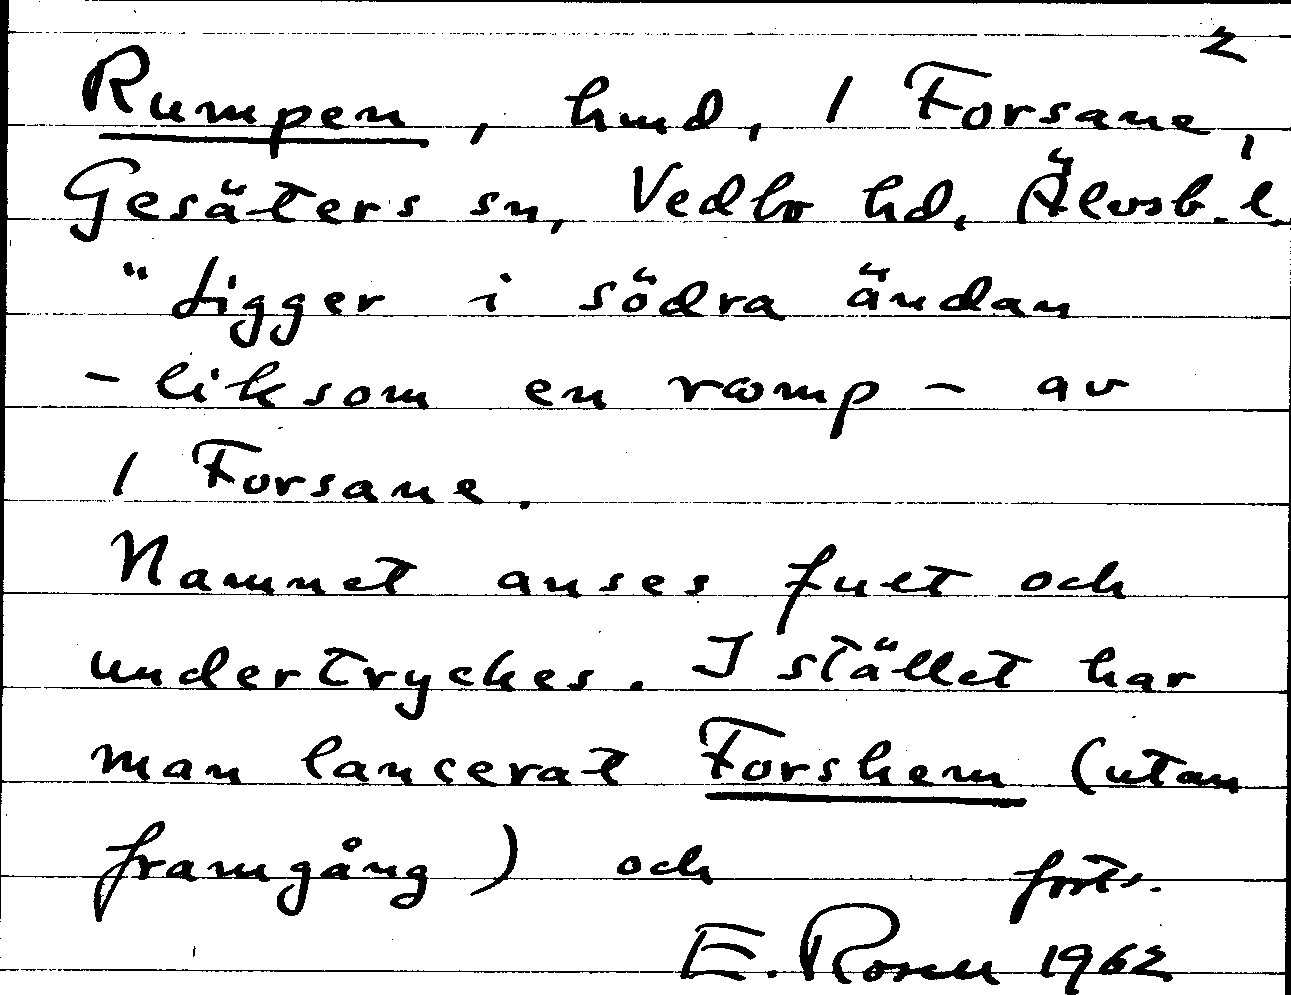 2
Rumpen, hmd, 1 Forsane,
Gesäters sn, Vedbo hd, Älvsb. l.
"Ligger i södra ändan
- liksom en romp - av
1 Forsane.
Namnet anses fult och
undertryckes. I stället har
man lancerat Forshem (utan
framgång) och forts.
E. Rosell 1962